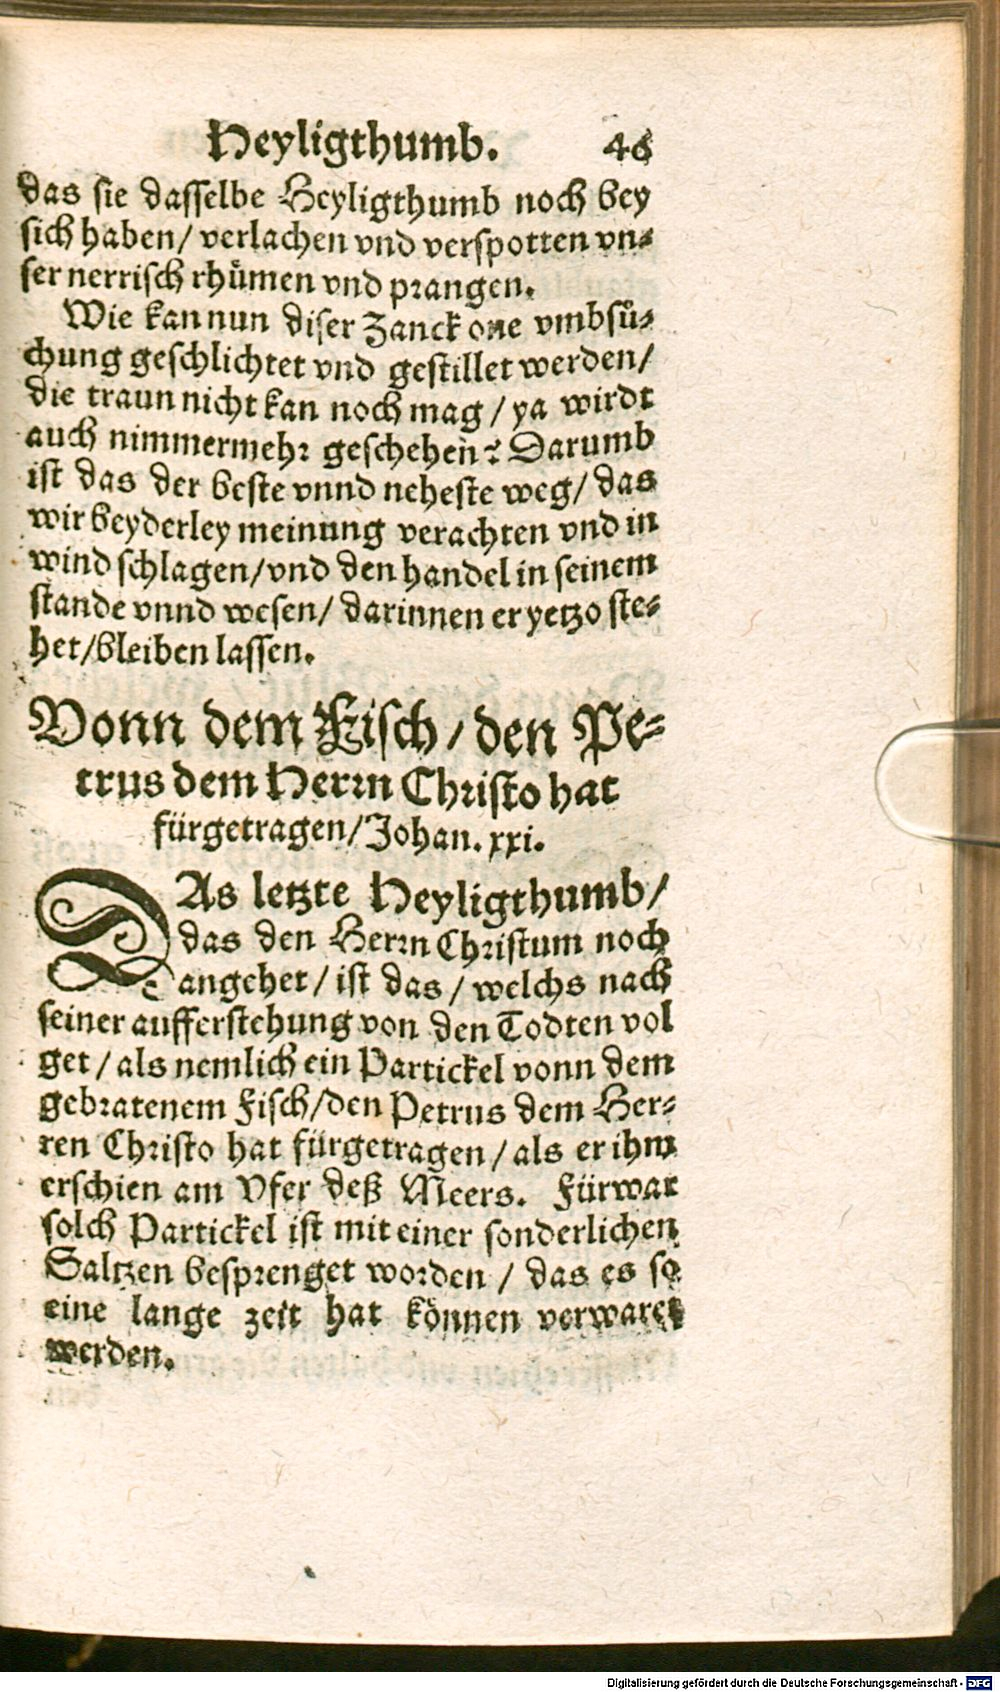 Heyligthumb. 46
das sie dasselbe Heyligthumb noch bey
sich haben/ verlachen vnd verspotten vn⸗
ser nerrisch rhuͤmen vnd prangen.
Wie kan nun diser Zanck one vmbsuͤ⸗
chung geschlichtet vnd gestillet werden/
die traun nicht kan noch mag / ya wirdt
auch nimmermehr geschehen? Darumb
ist das der beste vnnd neheste weg/ das
wir beyderley meinung verachten vnd in
wind schlagen/vnd den handel in seinem
stande vnnd wesen/ darinnen er yetzo ste⸗
het/bleiben lassen.
Vonn dem Fisch / den Pe⸗
trus dem Herrn Christo hat
fürgetragen/Johan. xxi.
DAs letzte Heyligthumb/
das den Herrn Christum noch
angehet / ist das / welchs nach
seiner aufferstehung von den Todten vol
get / als nemlich ein Partickel vonn dem
gebratenem Fisch/den Petrus dem Her⸗
ren Christo hat fürgetragen / als er ihm
erschien am Vfer deß Meers. Fürwar
solch Partickel ist mit einer sonderlichen
Saltzen besprenget worden / das es so
eine lange zeit hat koͤnnen verwaret
werden.
Digitalisierung gefördert durch die Deutsche Forschungsgemeinschaft - DFG